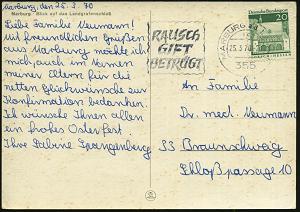 Marburg, den 25. 3. 70
Marburg Blick auf das Landgrafenschloß
Liebe Familie Neumann!
Mit freundlichen Grüßen
aus Marburg möchte ich
mich, auch im Namen
meiner Eltern für die
netten Glückwünsche zur
Konfirmation bedanken.
Ich wünsche Ihnen allen
ein frohes Osterfest.
Ihre Sabine Spangenberg
RAUSCH
GIFT
BETRÜGT
MARBURG
25.3.70
355
Deutsche Bundespost
20
An Familie
Dr. med. Neumann
33 Braunschweig
Schloßpassage 10